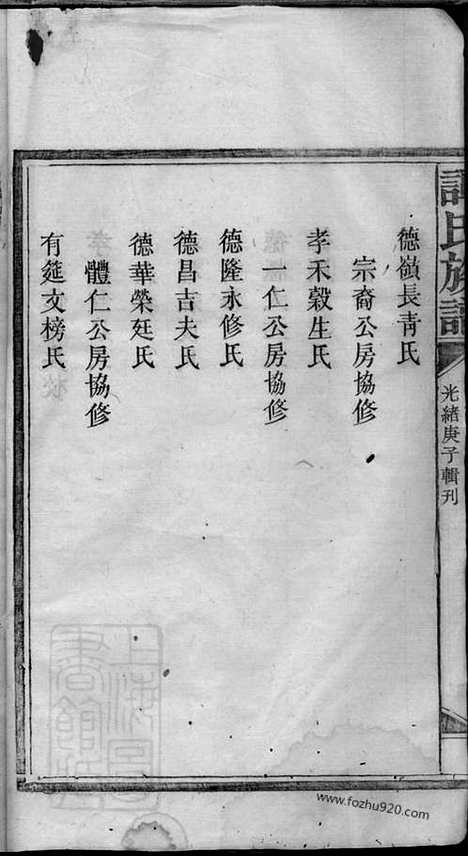 許氏族譜
光緒庚子輯刊
德嶺長青氏
宗裔公房協修
孝禾穀生氏
一仁公房協修
德隆永修氏
德昌吉夫氏
德華榮廷氏
體仁公房協修
有筵文榜氏
www.fozhu920.com